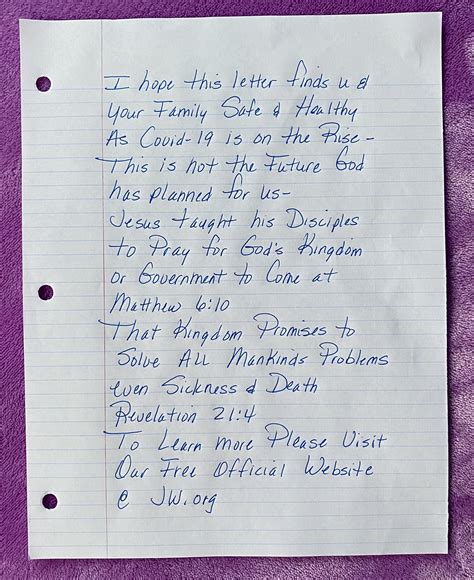 I hope this letter finds u &
Your Family Safe & Healthy
As Covid-19 is on the Rise -
This is not the Future God
has planned for us -
Jesus taught his Disciples
to Pray for God's Kingdom
or Government to Come at
Matthew 6:10
That Kingdom Promises to
Solve All Mankinds Problems
even Sickness & Death
Revelation 21:4
To Learn more Please Visit
Our Free Official Website
@ JW.org